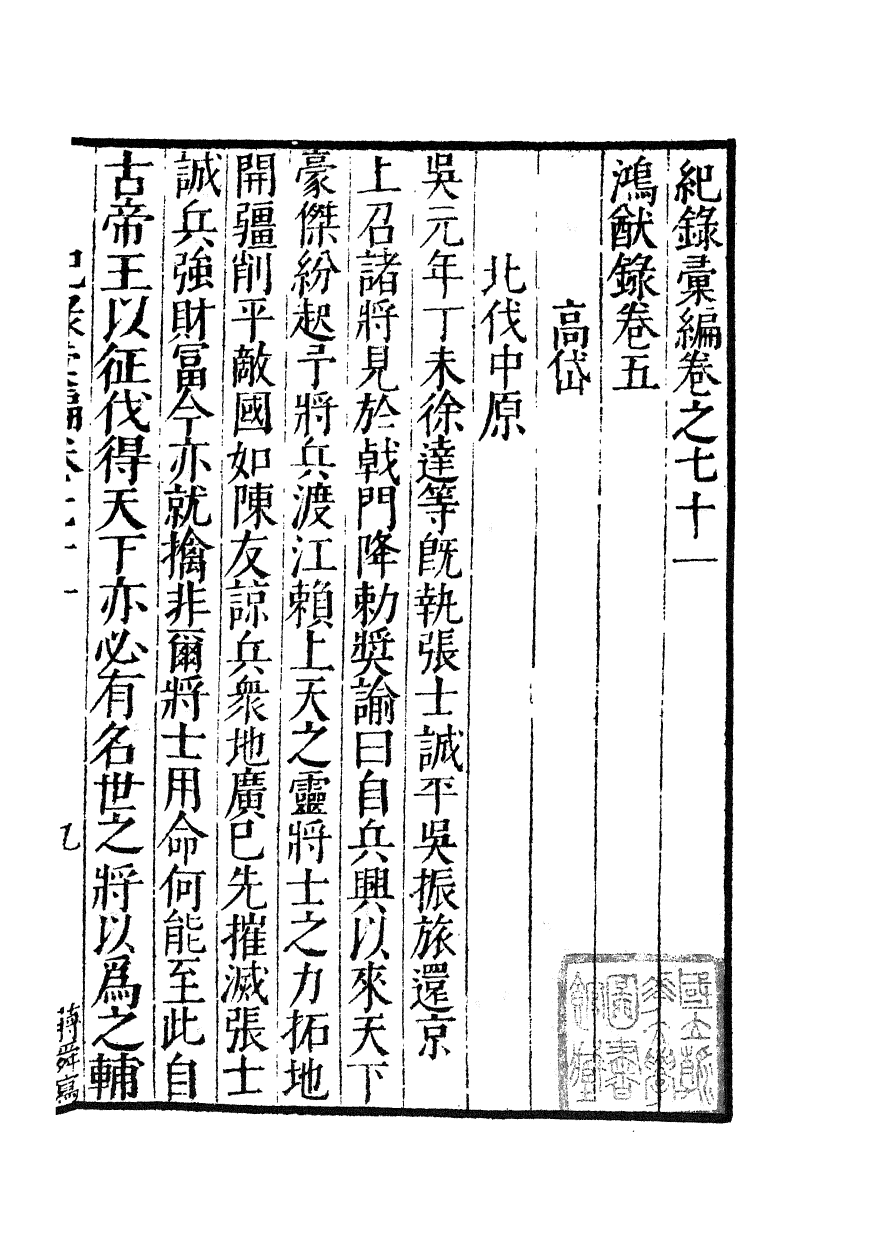 紀錄彙編卷之七十一
鴻猷錄卷五
高岱
北伐中原
吳元年丁未徐達等旣執張士誠平吳振旅還京
上召諸將見於戟門降勅奬諭曰自兵興以來天下
豪傑紛起予將兵渡江賴上天之靈將士之力拓地
開疆削平敵國如陳友諒兵衆地廣已先摧滅張士
誠兵強財富今亦就擒非爾將士用命何能至此自
古帝王以征伐得天下亦必有名世之將以爲之輔
蔣舜寫